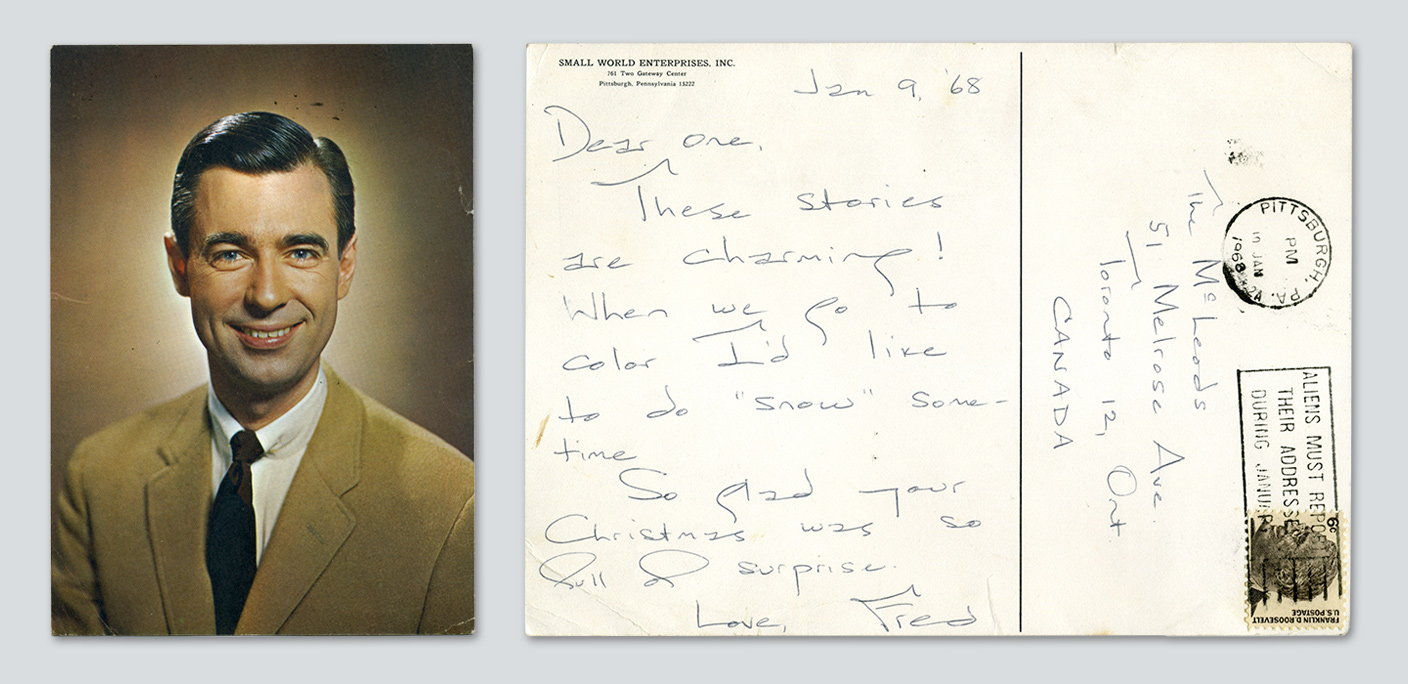 SMALL WORLD ENTERPRISES, INC.
761 Two Gateway Center
Pittsburgh, Pennsylvania 15222
Jan 9, '68
Dear one,
These stories
are charming!
When we go to
color I'd like
to do "snow" some-
time
So glad your
Christmas was so
full of surprise.
Love, Fred
The McLeods
51 Melrose Ave.
Toronto 12, Ont
CANADA
PITTSBURGH, PA.
PM
10 JAN
1968
ALIENS MUST REPO
THEIR ADDRESSE
DURING JANUAR
6¢
FRANKLIN D. ROOSEVELT
U.S. POSTAGE